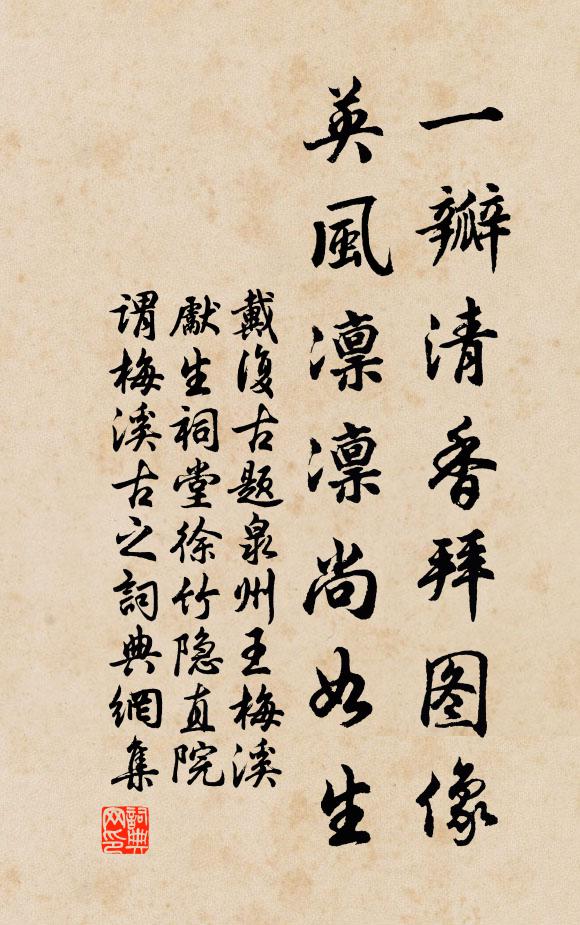 一瓣清香拜图像
英風凛凛尚如生
戴復古題泉州王梅溪
獻生祠堂徐竹隐直院
謂梅溪古之詞典網集
詞典网印